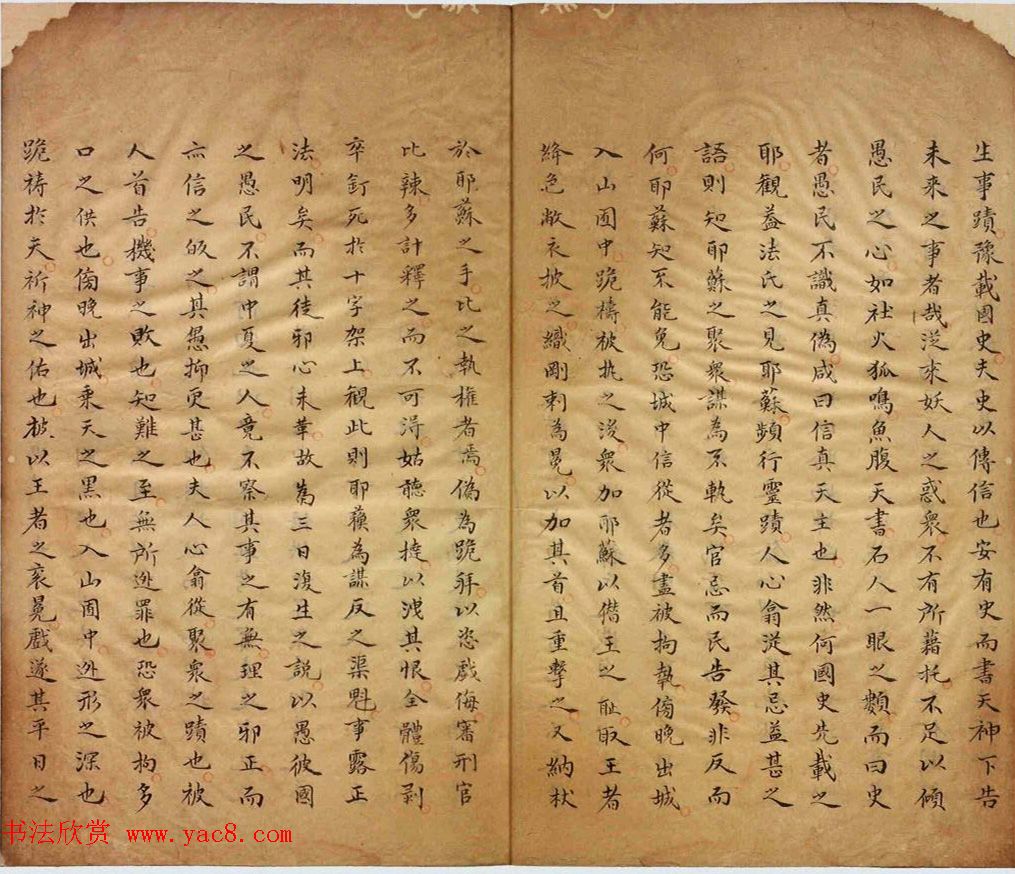 生事蹟豫載國史夫史以傳信也安有史而書天神下告
未來之事者哉從來妖人之惑衆不有所藉托不足以傾
愚民之心如社火狐鳴魚腹天書石人一眼之類而曰史
者愚民不識真偽咸曰信真天主也非然何國史先載之
耶觀蓋法氏之見耶蘇頻行靈蹟人心翕從其忌益甚之
語則知耶蘇之聚衆謀為不軌矣官忌而民告發非反而
何耶蘇知不能免恐城中信從者多盡被拘執傍晚出城
入山囿中跪禱被执之後衆加耶蘇以僭王之恥取王者
絳色敝衣披之織剛刺為冕以加其首且重擊之又納杖
於耶蘇之手比之執權者焉偽為跪拜以恣戲侮審刑官
比辣多計釋之而不可得姑聽衆撻以洩其恨全體傷剥
卒釘死於十字架上觀此則耶蘇為謀反之渠魁事露正
法明矣而其徒邪心未革故為三日復生之說以愚彼國
之愚民不謂中夏之人竟不察其事之有無理之邪正而
亦信之皈之其愚抑更甚也夫人心翕從聚衆之蹟也被
人首告機事之敗也知難之至無所逊罪也恐衆被拘多
口之供也傍晚出城乘天之黑也入山囿中逊形之深也
跪禱於天祈神之佑也披以王者之袞冕戲遂其平日之
书法欣赏 www.yac8.com